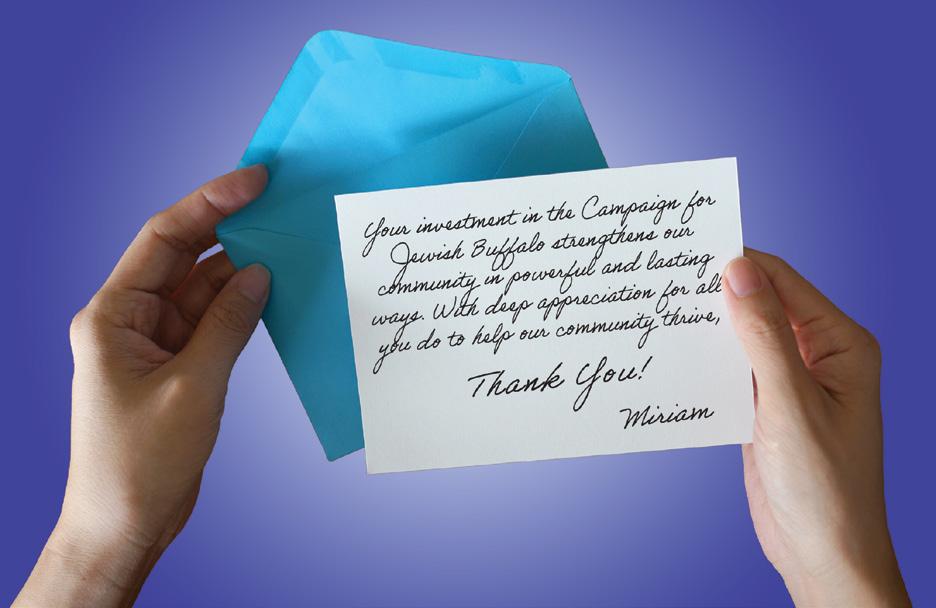 Your investment in the Campaign for
Jewish Buffalo strengthens our
community in powerful and lasting
ways. With deep appreciation for all
you do to help our community thrive,
Thank You!
Miriam